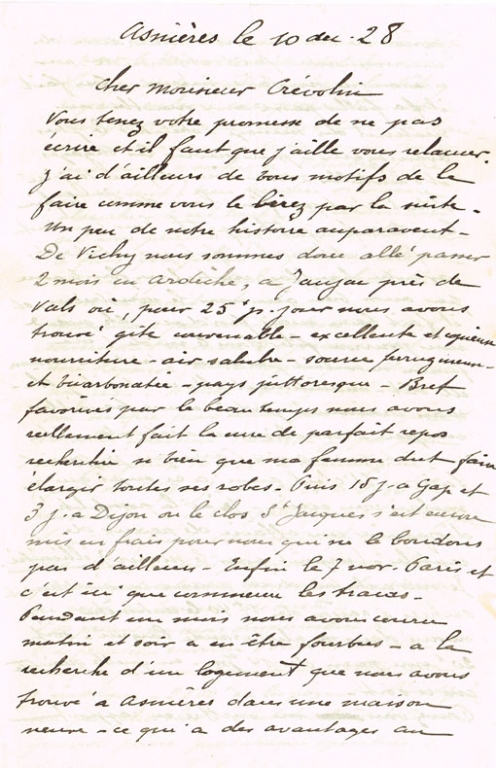 Asnières le 10 dec. 28
Cher monsieur Crévolin
Vous tenez votre promesse de ne pas
écrire et il faut que j'aille vous relancer.
J'ai d'ailleurs de vous motifs de le
faire comme vous le lirez par la suite.
Un peu de notre histoire auparavant -
De Vichy nous sommes donc allé passer
2 mois en ardèche, a Jaujac près de
Vals où, pour 25f p. jour nous avons
trouvé gîte convenable - excellente et copieuse
nourriture - air salubre - source ferrugineuse
et bicarbonatée - pays pittoresque - Bref
favorisés par le beau temps nous avons
réellement fait la cure de parfait repos
recherchée si bien que ma femme dut faire
élargir toutes ses robes - Puis 15 j. a Gap et
3 j. a Dijon ou le clos St Jacques s'est encore
mis en frais pour nous qui ne le boudons
pas d'ailleurs - Enfin le 7 nov. Paris et
c'est ici que commence les tracas -
Pendant un mois nous avons couru
matin et soir a en être fourbus - a la
recherche d'un logement que nous avons
trouvé a Asnières dans une maison
neuve - ce qui a des avantages au